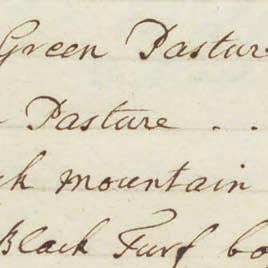 Green Pasture
Pasture . .
mountain
Black Turf bo